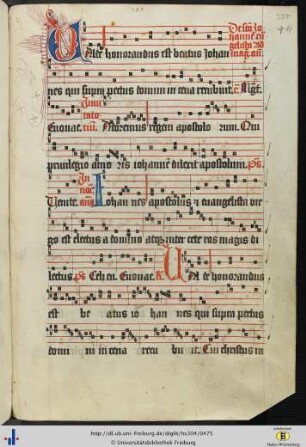 De sco Jo
hanne eu
gelista Ad
mag. an.
Valde honorandus est beatus Johan
nes qui supra pectus domini in cena recubuit. Mgt.
Invi
tato
Euouae. riu. Adoremus regem apostolo rum. Qui
privilegio amo ris iohannem dilexit apostolum. ps.
In
noc
Venite. an. Iohan nes apostolus et euangelista vir
go est electus a domino atque inter ceteros magis di
lectus. ps. Celi en. Euouae. R. Valde honorandus
est be atus io han nes qui supra pectus
domi ni in cena recu bu it. Cui christus in
http://dl.ub.uni-freiburg.de/diglit/hs304/0475
© Universitätsbibliothek Freiburg